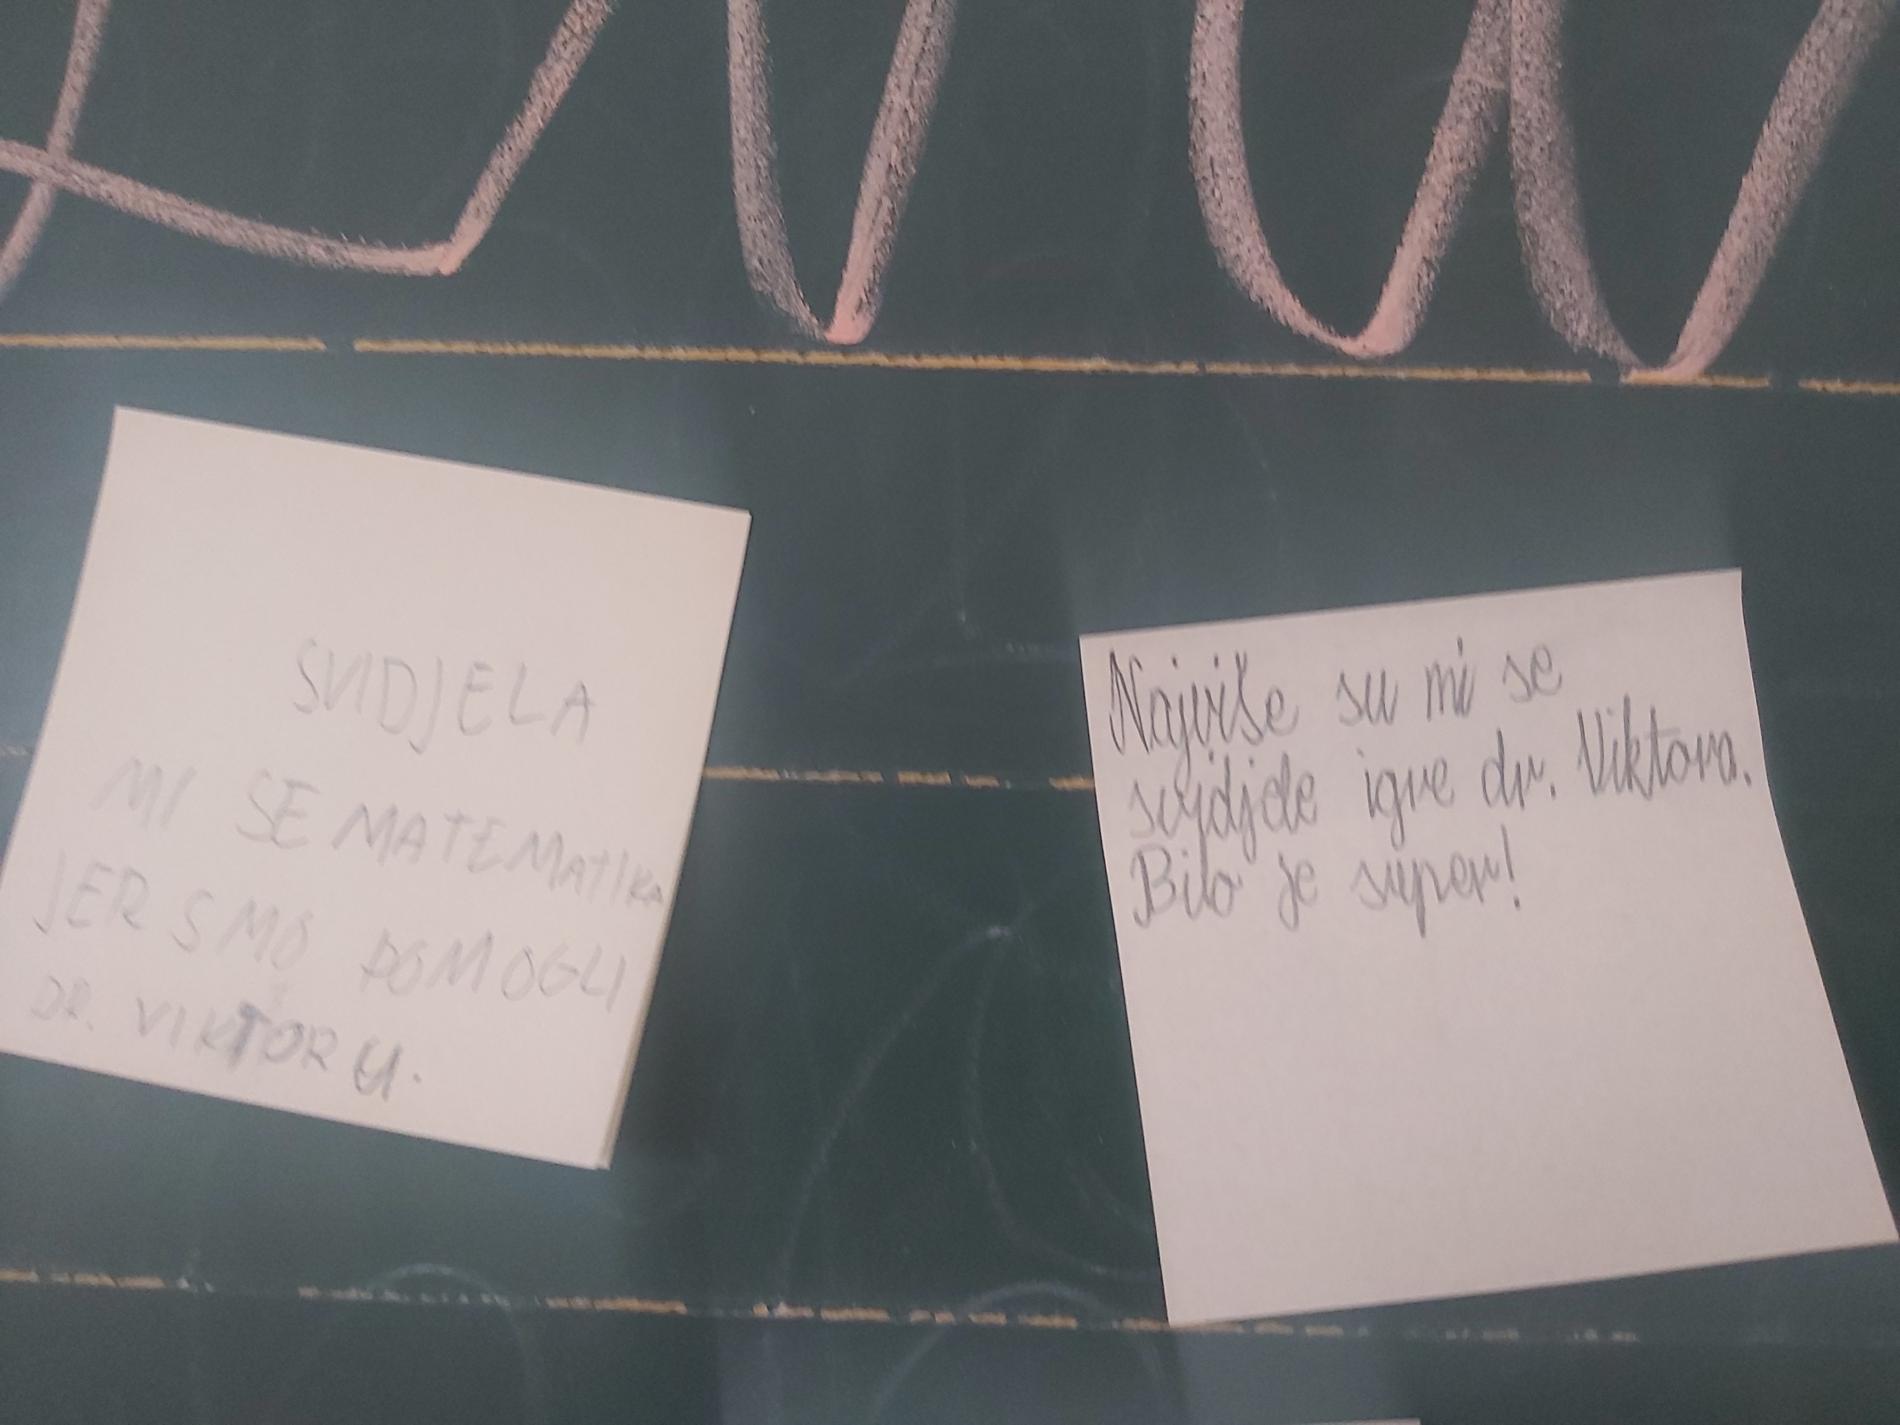 SVIDJELA
MI SE MATEMATIKA
JER SMO POMOGLI
DR. VIKTORU.
Najviše su mi se
svidjele igre dr. Viktora.
Bilo je super!